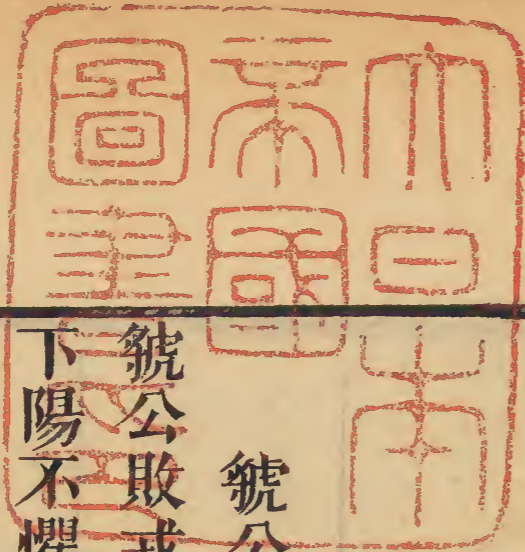 大日本
帝國
圖書印
虢公
虢公敗戎
下陽不懼